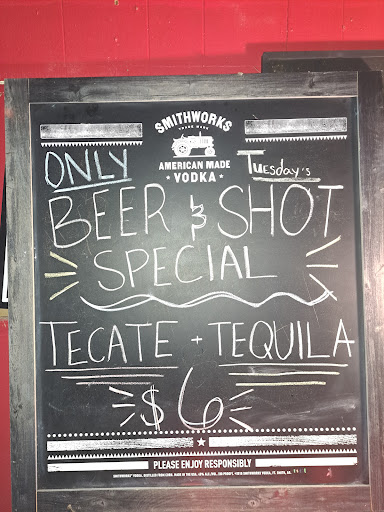 SMITHWORKS
TRADE MARK
AMERICAN MADE
VODKA
ONLY
Tuesday's
BEER & SHOT
SPECIAL
TECATE + TEQUILA
$6
PLEASE ENJOY RESPONSIBLY